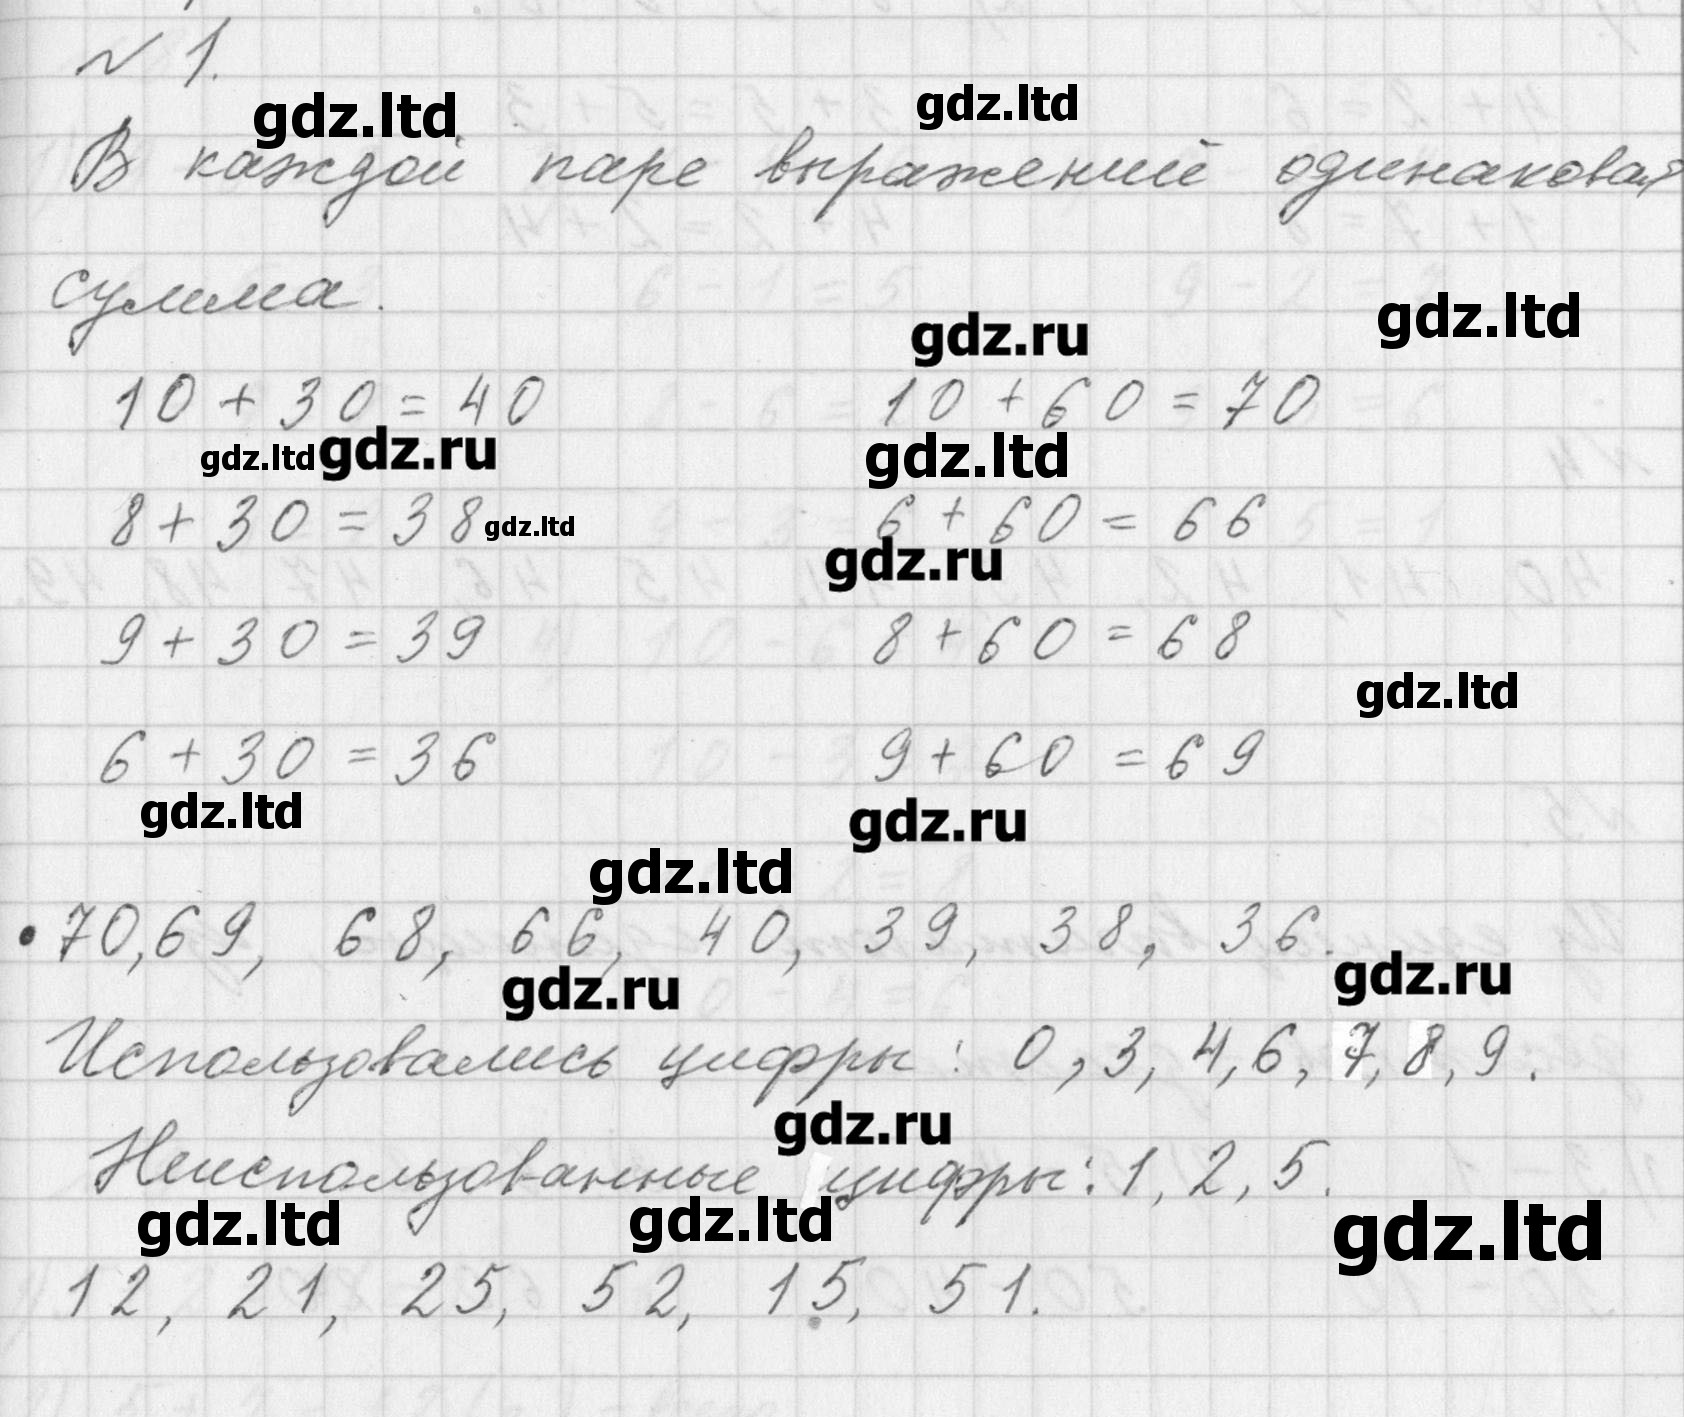 № 1.
gdz.ltd gdz.ltd
В каждой паре выражений одинаковая
сумма.
gdz.ru gdz.ltd
10 + 30 = 40 10 + 60 = 70
gdz.ltd gdz.ru gdz.ltd
8 + 30 = 38 gdz.ltd 6 + 60 = 66
gdz.ru
9 + 30 = 39 8 + 60 = 68
gdz.ltd
6 + 30 = 36 9 + 60 = 69
gdz.ltd gdz.ru
gdz.ltd
• 70, 69, 68, 66, 40, 39, 38, 36.
gdz.ru gdz.ru
Использовались цифры: 0, 3, 4, 6, 7, 8, 9.
gdz.ru
Неиспользованные цифры: 1, 2, 5.
gdz.ltd gdz.ltd gdz.ltd
12, 21, 25, 52, 15, 51.